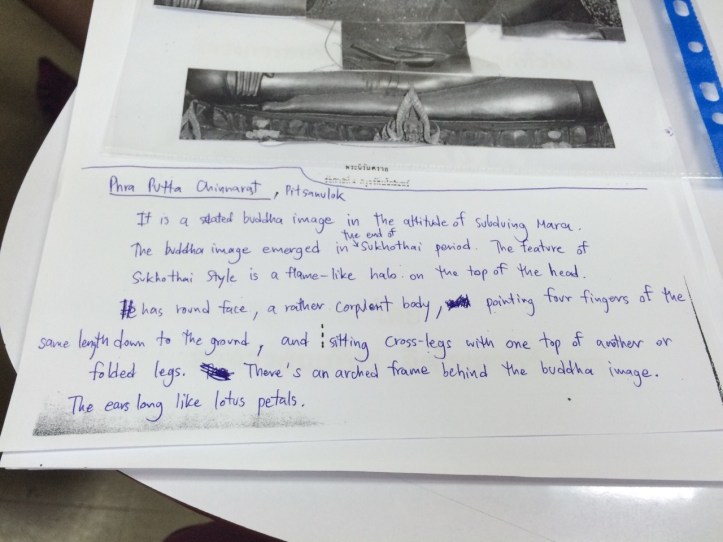 พระนิรันตราย
Phra Putta Chinnarat, Pitsanulok
It is a seated buddha image in the attitude of subduing Mara.
The buddha image emerged in the end of Sukhothai period. The feature of
Sukhothai Style is a flame-like halo on the top of the head.
It has round face, a rather corpulent body, pointing four fingers of the
same length down to the ground, and sitting cross-legs with one top of another or
folded legs. There's an arched frame behind the buddha image.
The ears long like lotus petals.